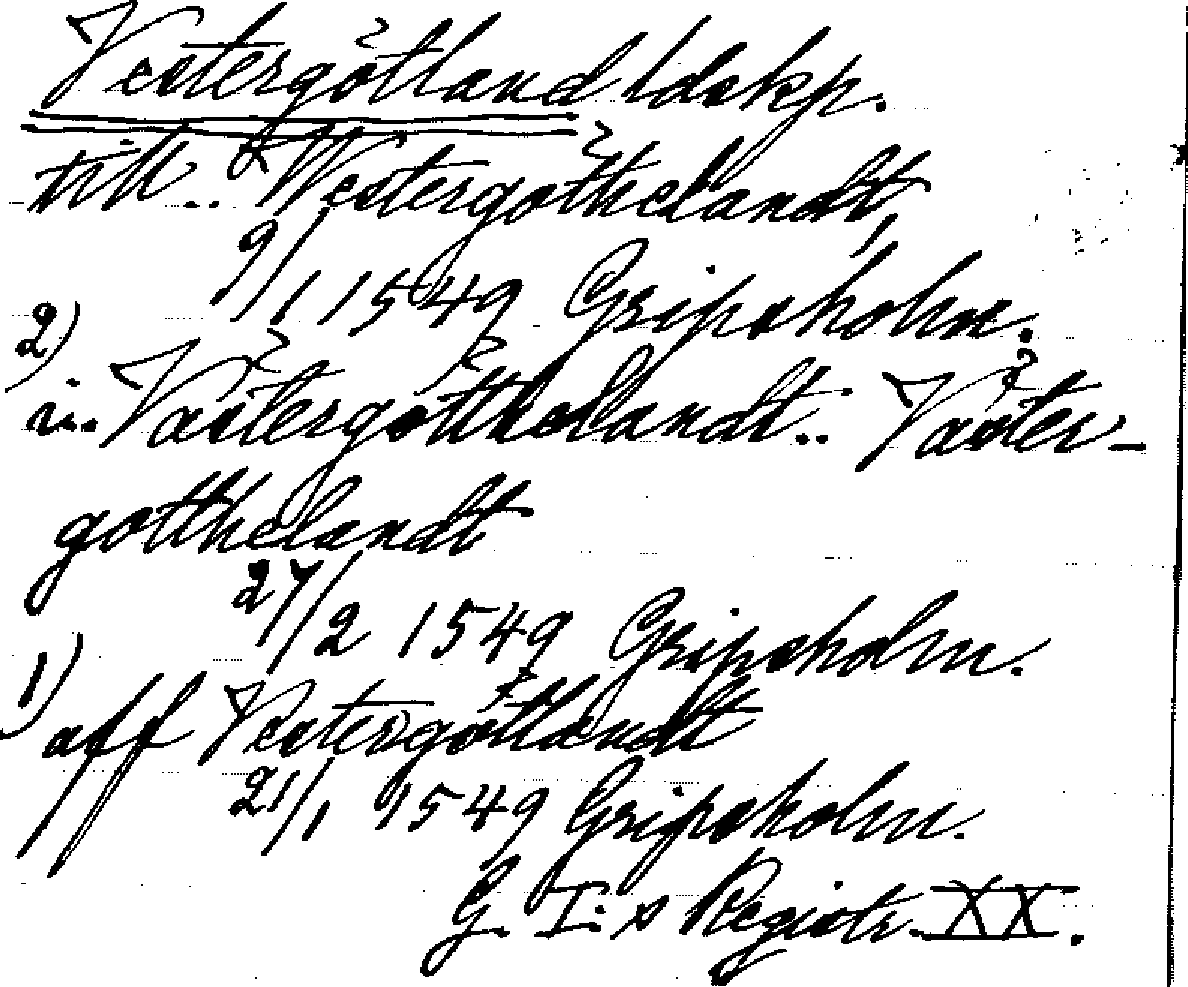 Vestergötland ldskp.
till.. Westergöthelandt,
9/1 1549 Gripsholm.
2)
i.. Vastergötthelandt.. Vaster-
gotthelandt
27/2 1549 Gripsholm.
1)
aff Vestergötlandt
21/1 1549 Gripsholm.
G. I:s Registr. XX.